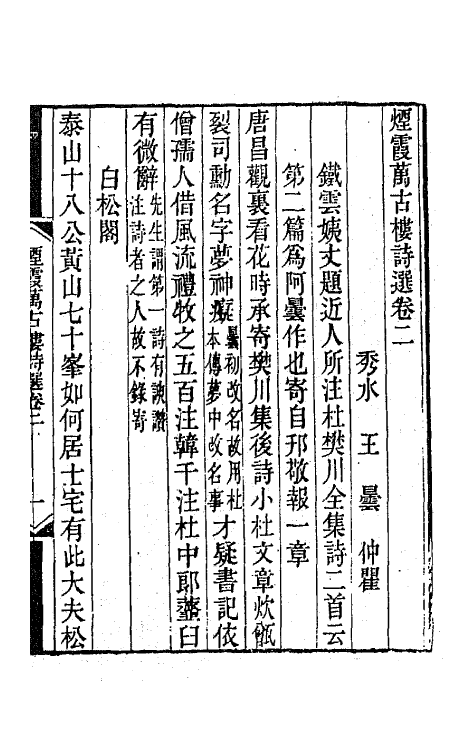 煙霞萬古樓詩選卷二
秀水　王　曇　仲瞿
鐵雲姨丈題近人所注杜樊川全集詩二首云
第二篇為阿曇作也寄自邗敬報一章
唐昌觀裏看花時承寄樊川集後詩小杜文章炊甑
裂司勳名字夢神癡曇初改名故用杜本傳夢中改名事才疑書記依
僧孺人借風流禮牧之五百注韓千注杜中郎虀臼
有微辭先生謂第一詩有諛讚注詩者之人故不錄寄
白松閣
泰山十八公黃山七十峯如何居士宅有此大夫松
煙霞萬古樓詩選卷二
一